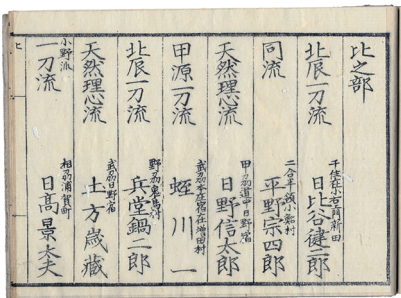 比之部
北辰一刀流
千住在小右衛門新田
日比谷健二郎
同流
二合半領小鮎村
平野宗四郎
天然理心流
甲州道中日野宿
日野信太郎
甲源一刀流
武州本庄宿在増田村
蛭川一
北辰一刀流
野州鬼
兵堂鍋二郎
天然理心流
武州日野宿
土方歳蔵
小野派
一刀流
相州浦賀町
日高景太夫